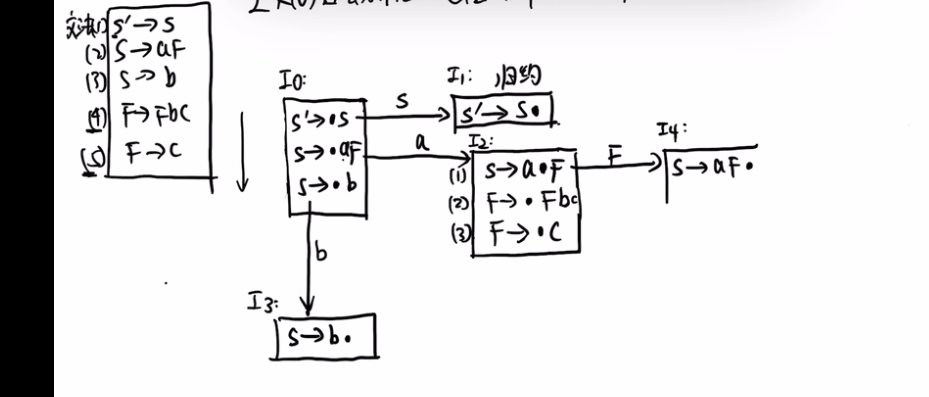 文法(1) S'→S
(2) S→aF
(3) S→b
(4) F→Fbc
(5) F→c
I0:
S'→·S
S→·aF
S→·b
S
I1: 归约
S'→S·
a
I2:
(1) S→a·F
(2) F→·Fbc
(3) F→·c
F
I4:
S→aF·
b
I3:
S→b·